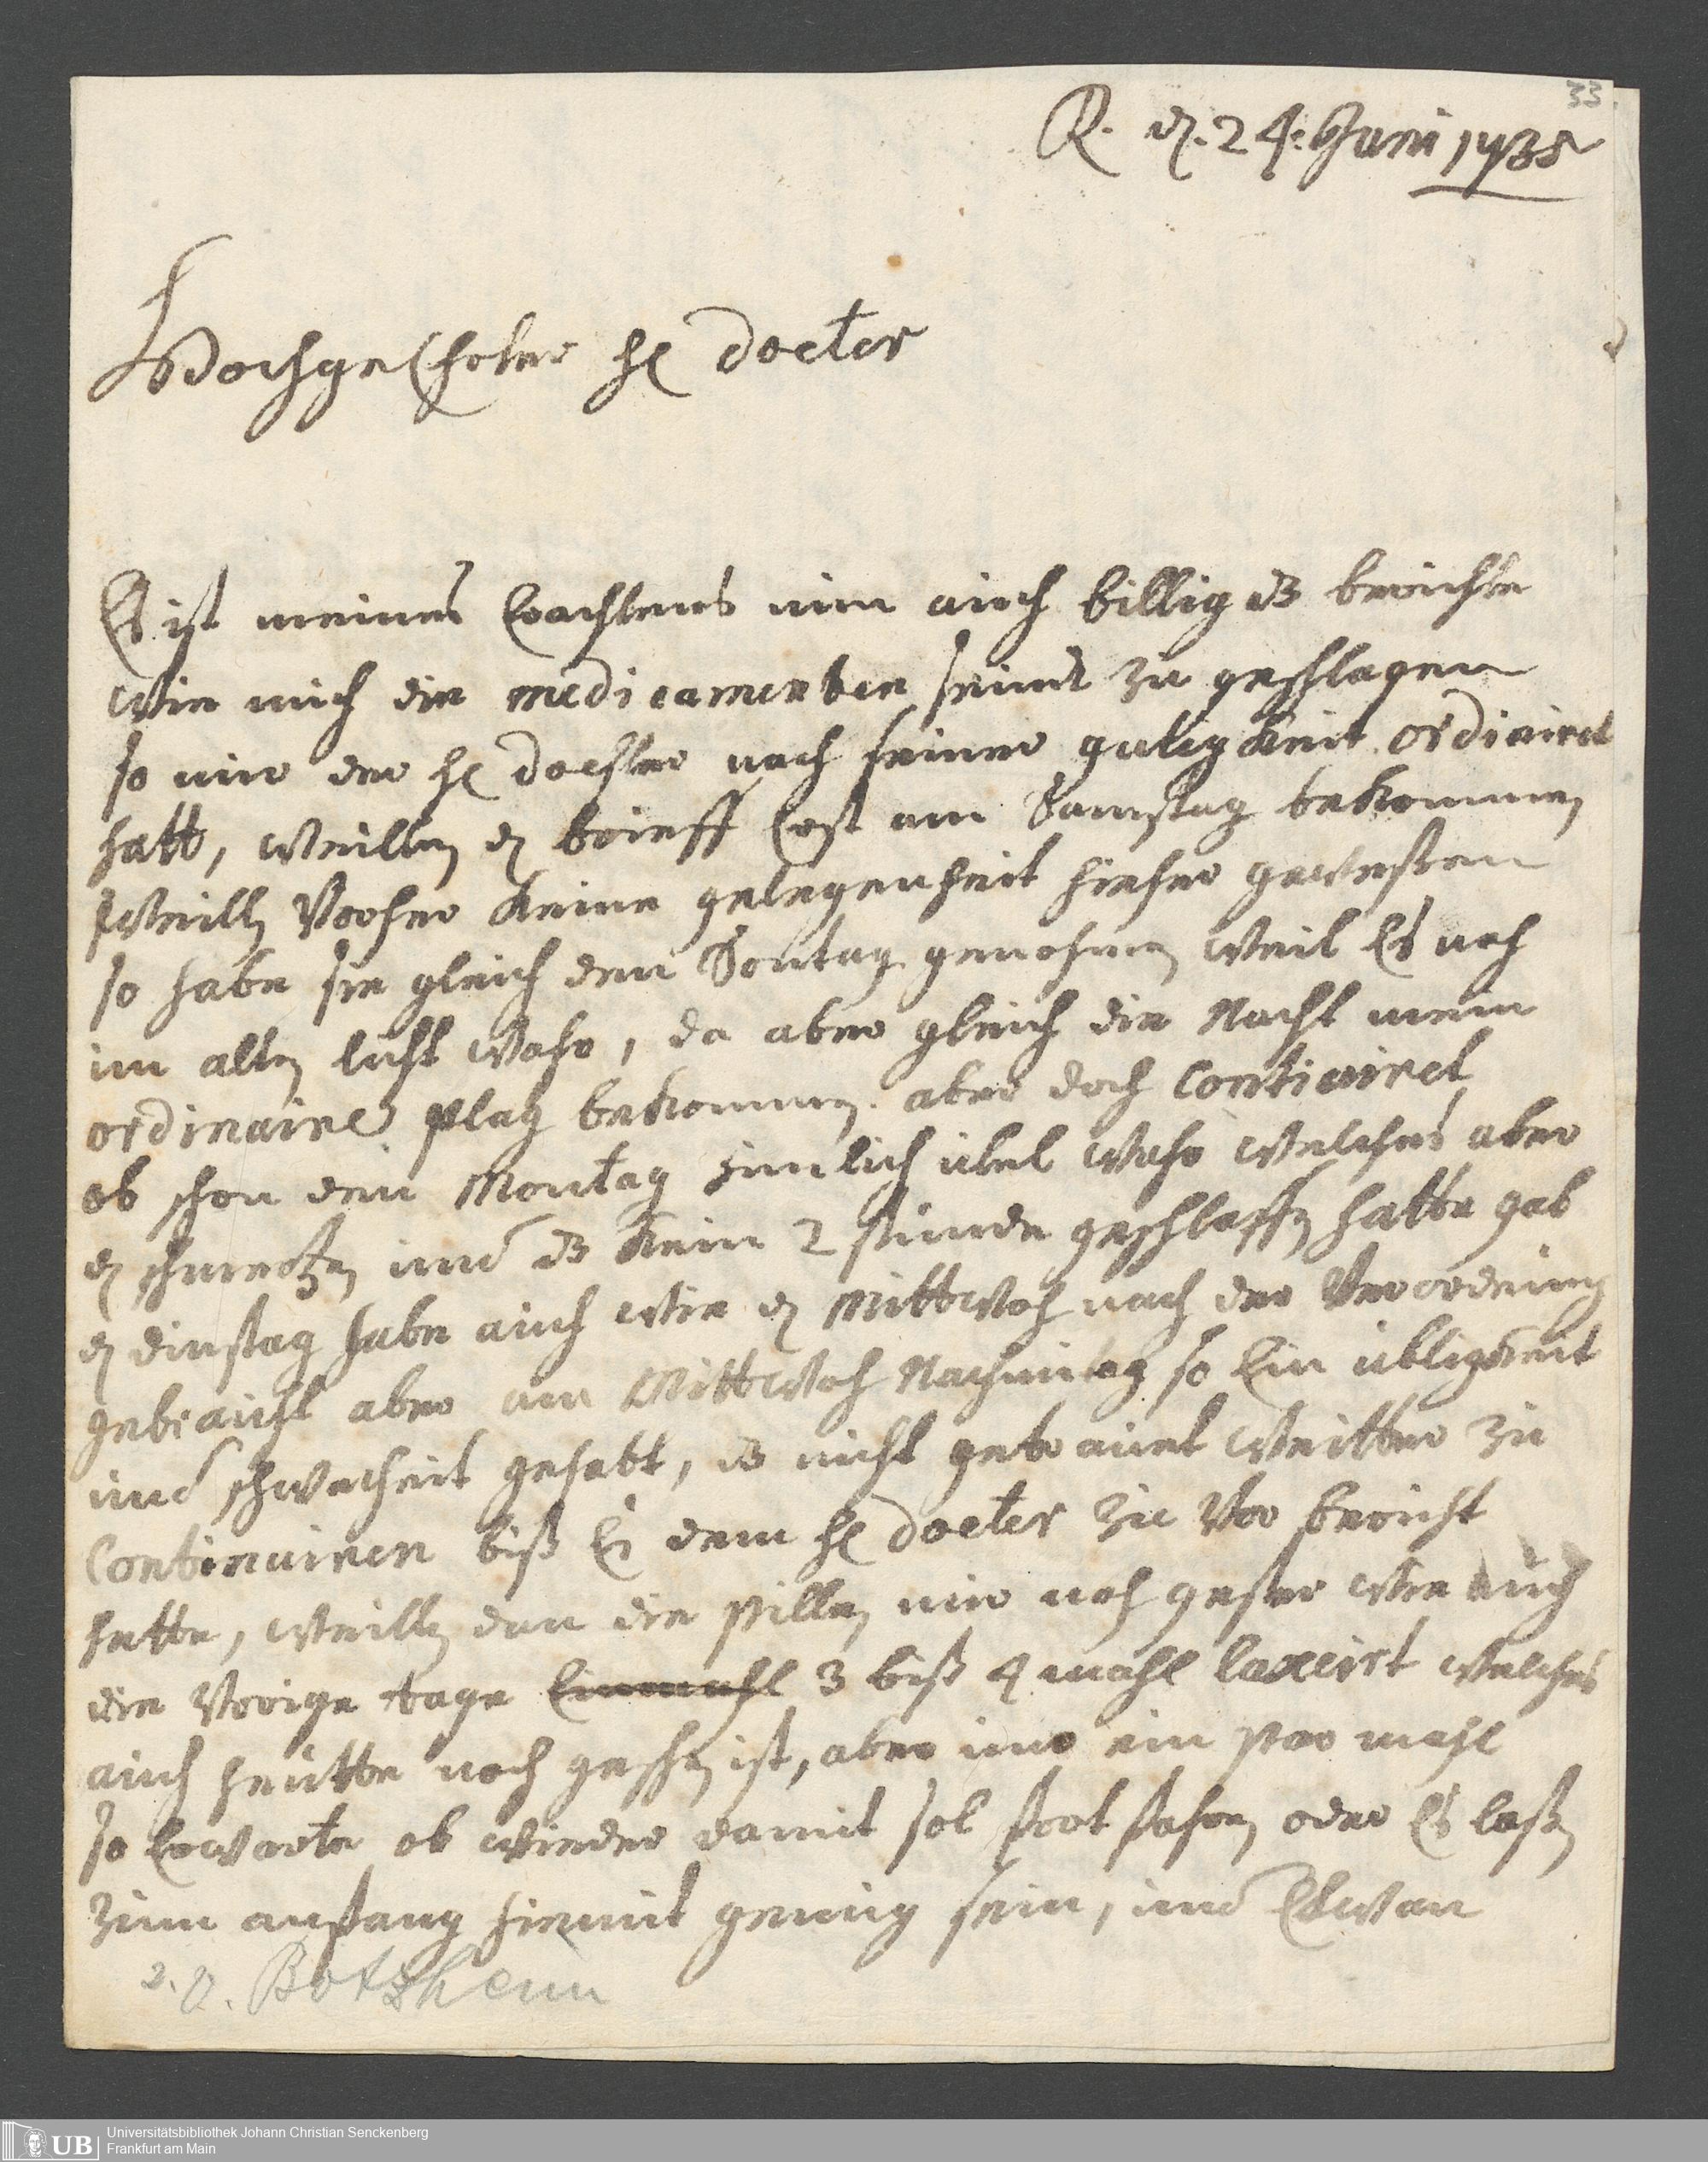 33.
R. dē. 24. Juni 1738
Hochgelehrter hl docter
Es ist meines Erachtens nun auch billig dß berichte
wie mich die medicamenten seind zu geschlagen
so mir der hl docther nach seiner gutigkeit ordinirt
hatt, weillen dē brieff Erst am Samstag bekommen
weilln Vorher keine gelegenheit hieher gewessen
so habe sie gleich den Sontag genohmen weil Es noch
im alten licht wahr, da aber gleich die Nacht mein
ordinaire plag bekommen aber doch Continuiret
ob schon den Montag zimlich übel wahr welches aber
dē schmertzen und dß kein 2 stunde geschlaffen hatte gab
dē dinstag habe auch wie dē Mittwoch nach der Verordnung
gebraucht aber am Mittwoch Nachmitag so Ein übligkeit
und schwacheit gehabt, dß nicht getrauet weitter zu
Continuiren biß Es dem hl docter zu Vor bericht
hette, weilln dan die pillen mir noch gester wie auch
die Vorige tage Einmahl 3 biß 4 mahl laxirt welches
auch heutte noch geschehen ist, aber nur ein par mahl
so Erwarte ob wieder damit sol fort fahren oder Es laßen
zum anfang hiemit genug sein, und Etwan
v. Botzheim
Universitätsbibliothek Johann Christian Senckenberg
Frankfurt am Main
UB